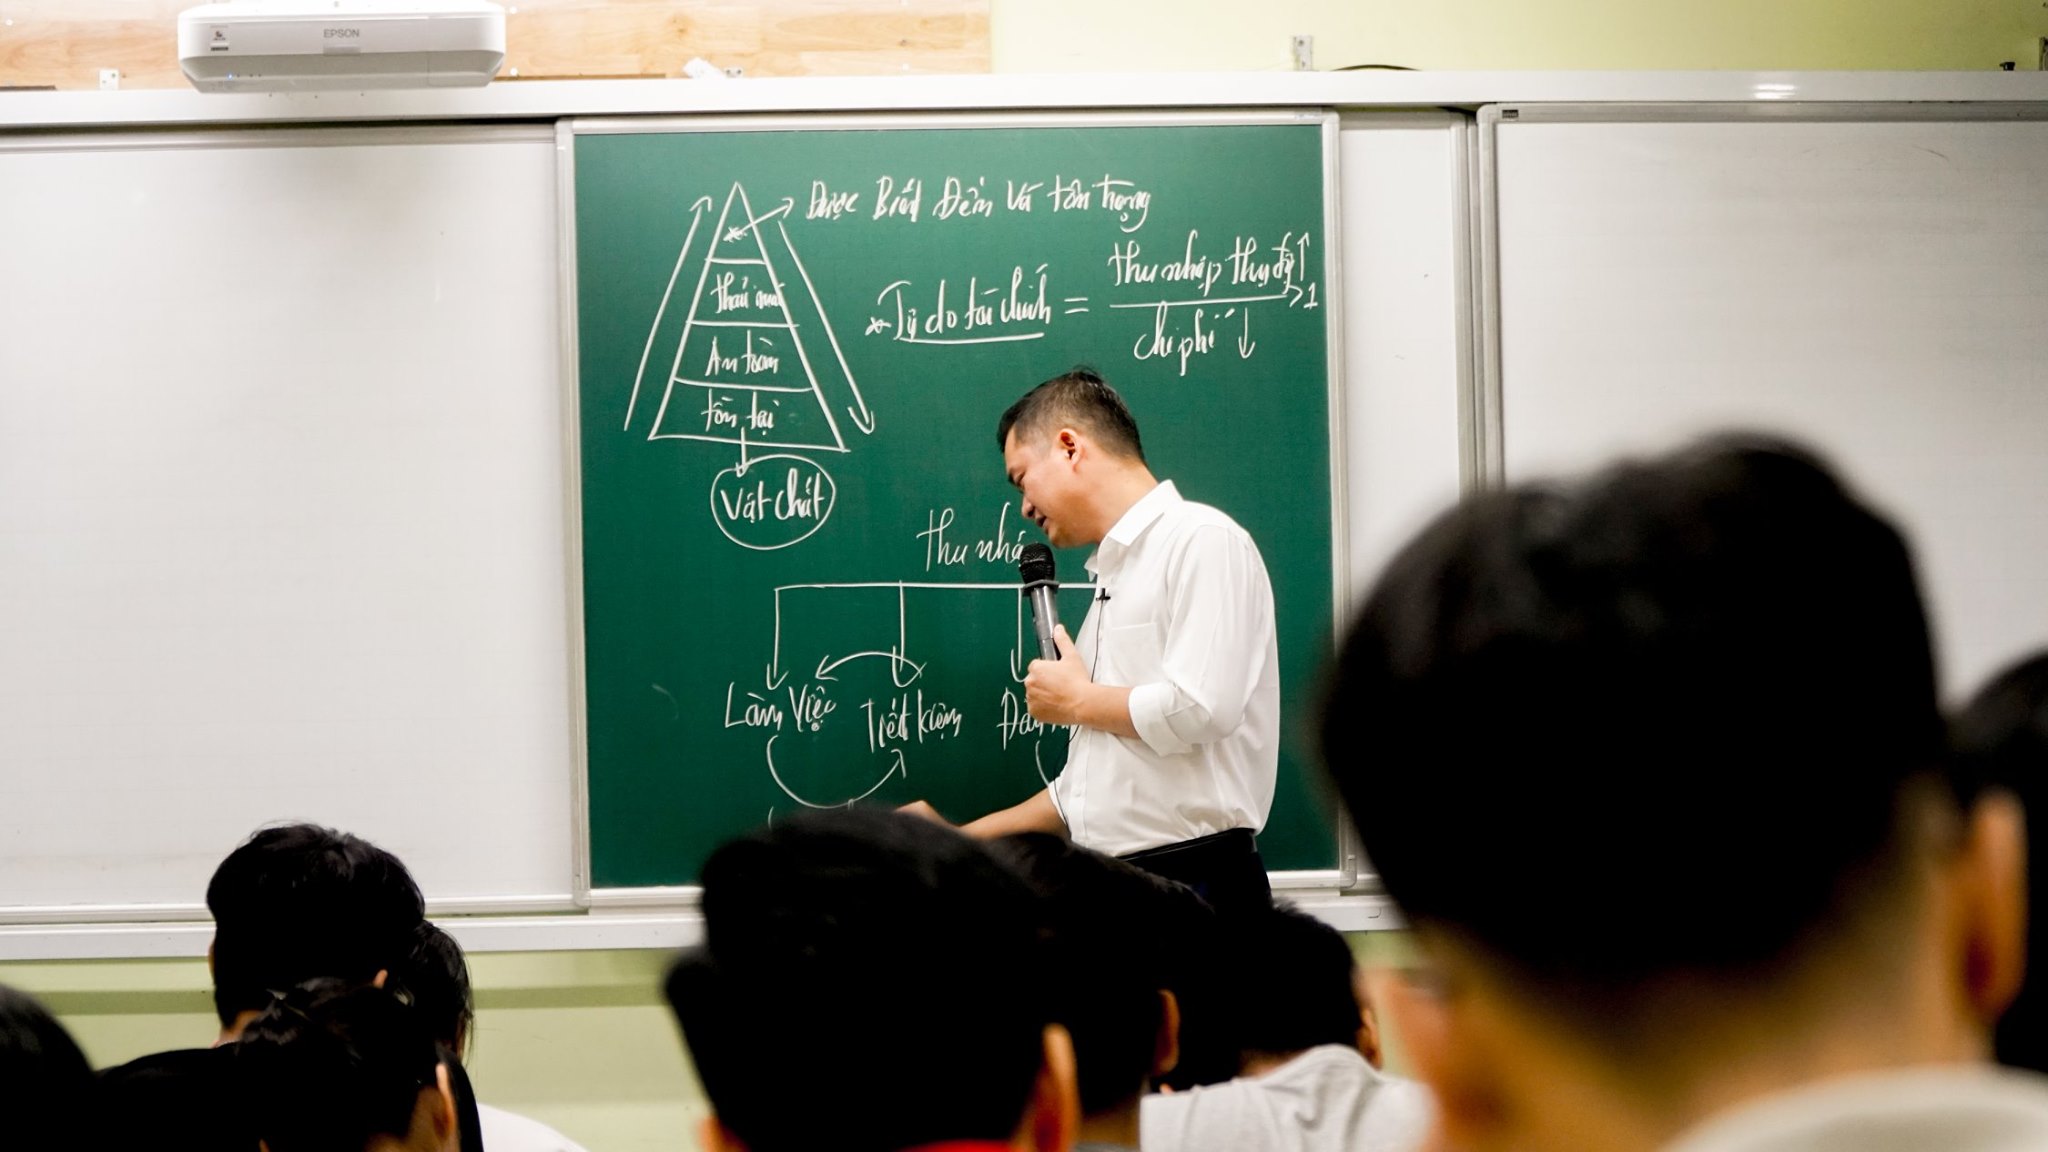 EPSON
Được Biết Đến Và tôn trọng
thoải mái
An toàn
tồn tại
Vật chất
Tự do tài chính = thu nhập thụ động ↑
chi phí ↓
>1
thu nhập
Làm Việc
Tiết kiệm